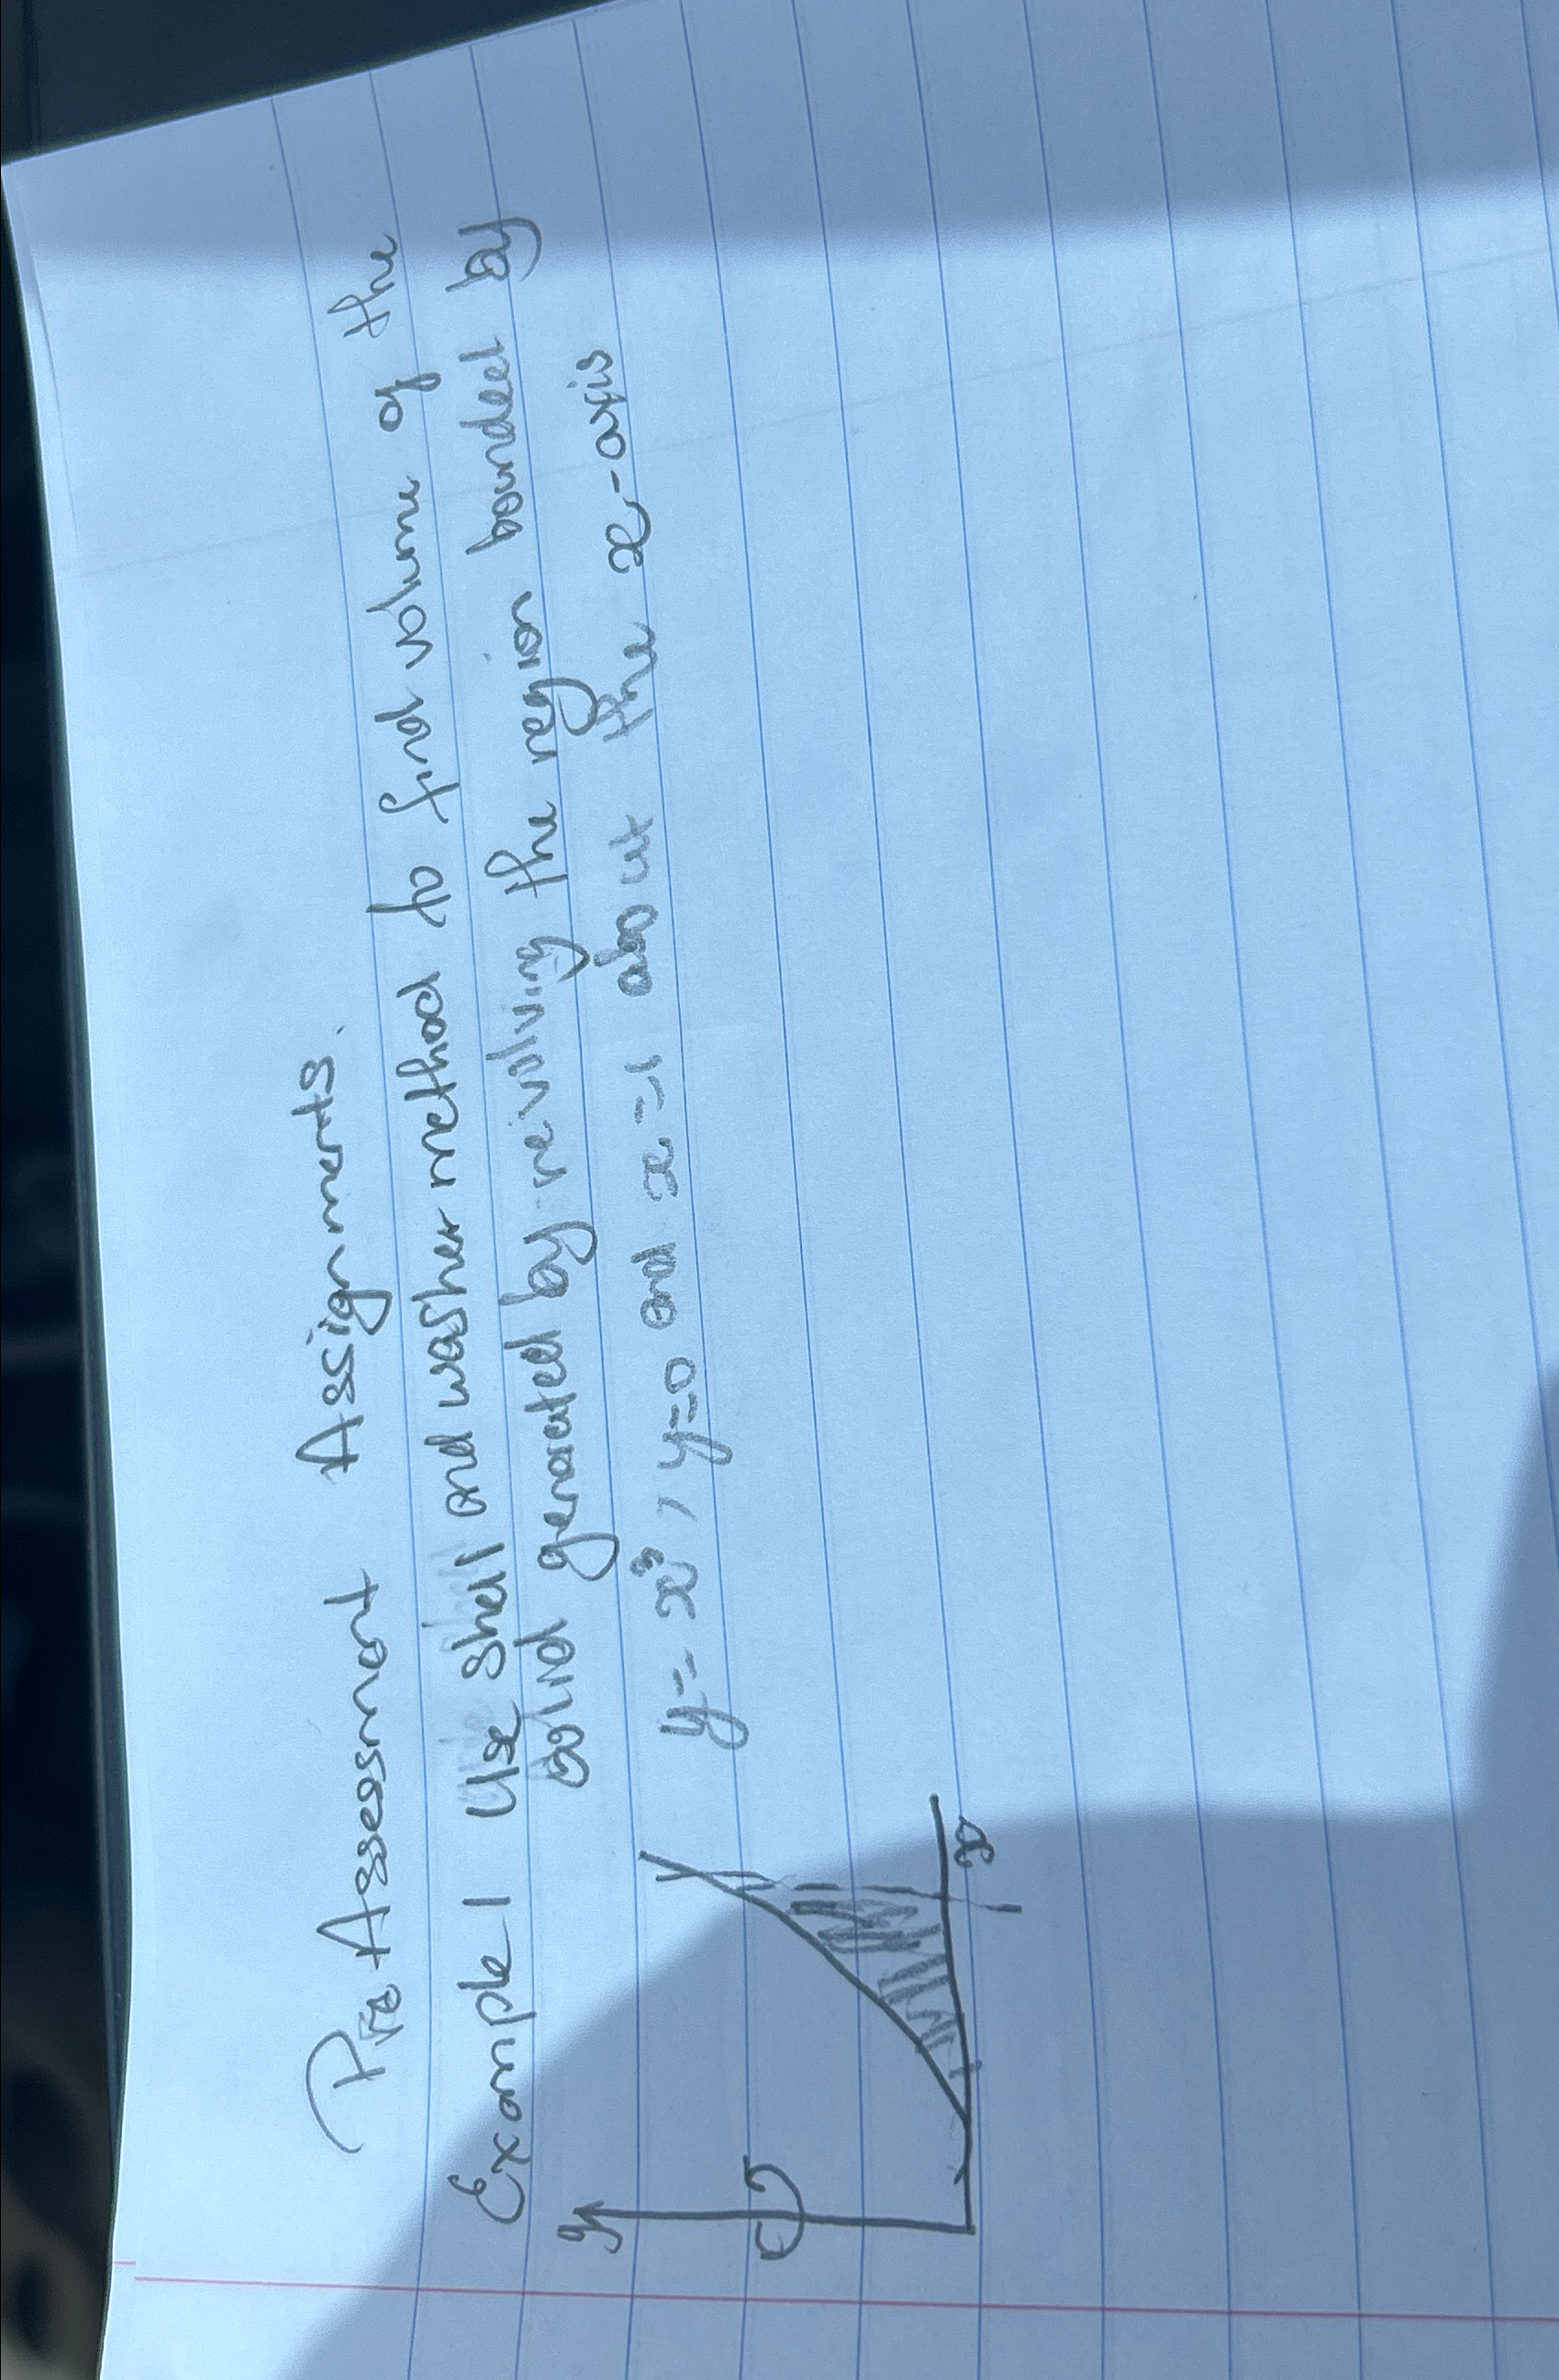 Pre Assessment Assignments.
Example 1 Use shell and washer method to find volume of the
solid generated by revolving the region bounded by
y = x³, y=0 and x=1 about the x-axis
y
x